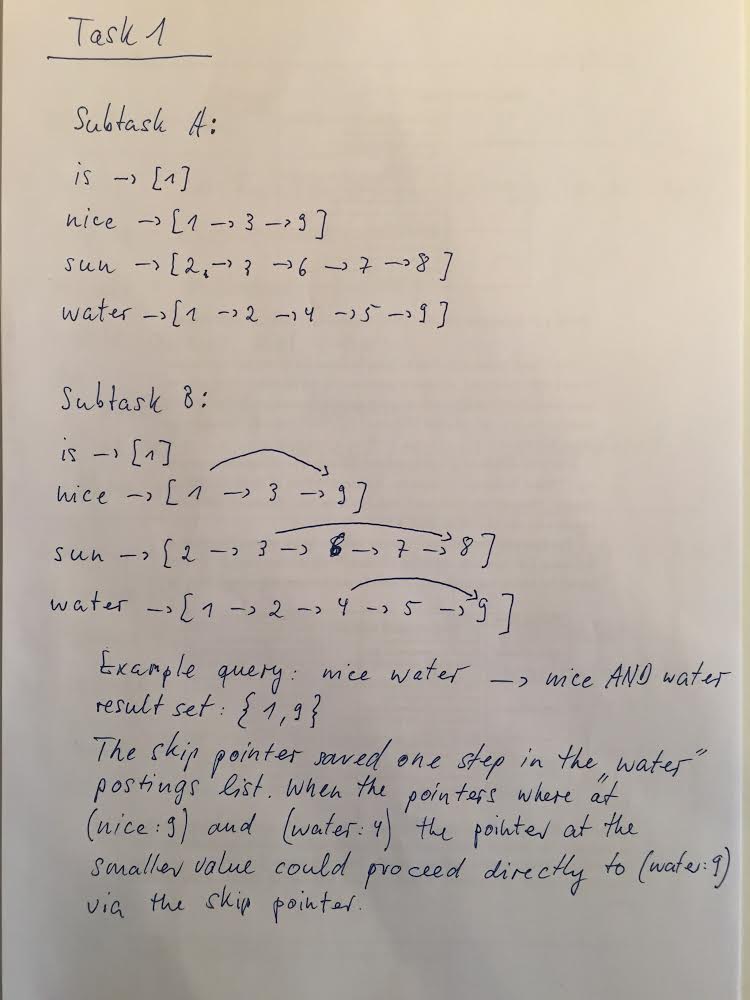 Task 1
Subtask A:
is → [1]
nice → [1 → 3 → 9]
sun → [2 → 3 → 6 → 7 → 8]
water → [1 → 2 → 4 → 5 → 9]
Subtask B:
is → [1]
nice → [1 → 3 → 9]
sun → [2 → 3 → 6 → 7 → 8]
water → [1 → 2 → 4 → 5 → 9]
Example query: nice water → nice AND water
result set: {1,9}
The skip pointer saved one step in the „water"
postings list. When the pointers where at
(nice:9) and (water:4) the pointer at the
smaller value could proceed directly to (water:9)
via the skip pointer.